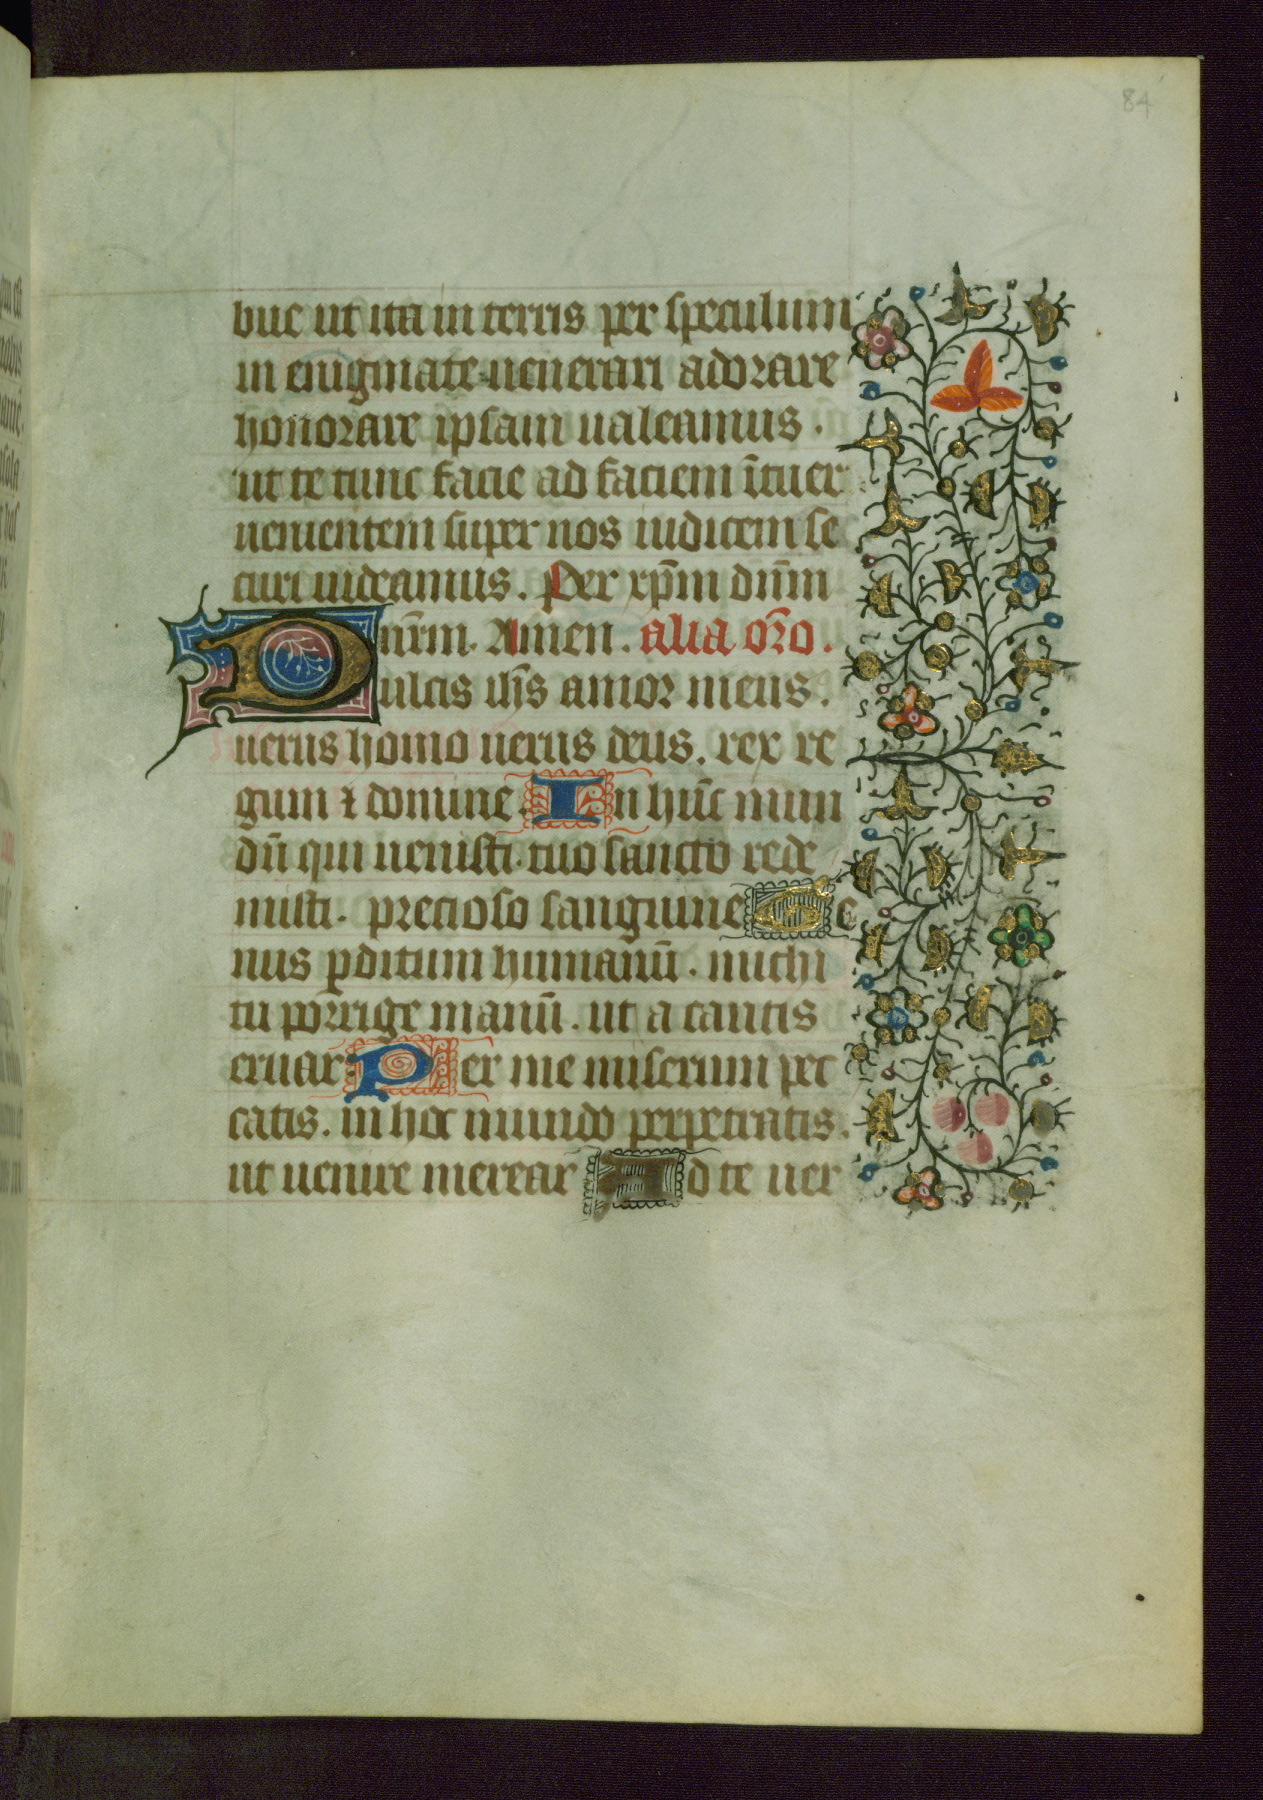 84
bue ut ita in terris per speculum
in enigmate uenerari adorare
honorare ipsam ualeamus.
ut te tunc facie ad faciem ĩtuer
uenientem super nos iudicem se
curi uideamus. Per xp̃m dñm
nr̃m. Amen. alia or̃o.
Dulcis ih̃s amor meus.
uerus homo uerus deus. rex re
gum ⁊ domine. In hũc mun
dũ qui uenisti. tuo sancto rede
misti. precioso sanguine Ge
nus ꝑditum humanũ. michi
tu porrige manũ. ut a cautis
eruar. Per me miserum pec
catis. in hoc mundo perpetratis.
ut uenire merear Ad te uer